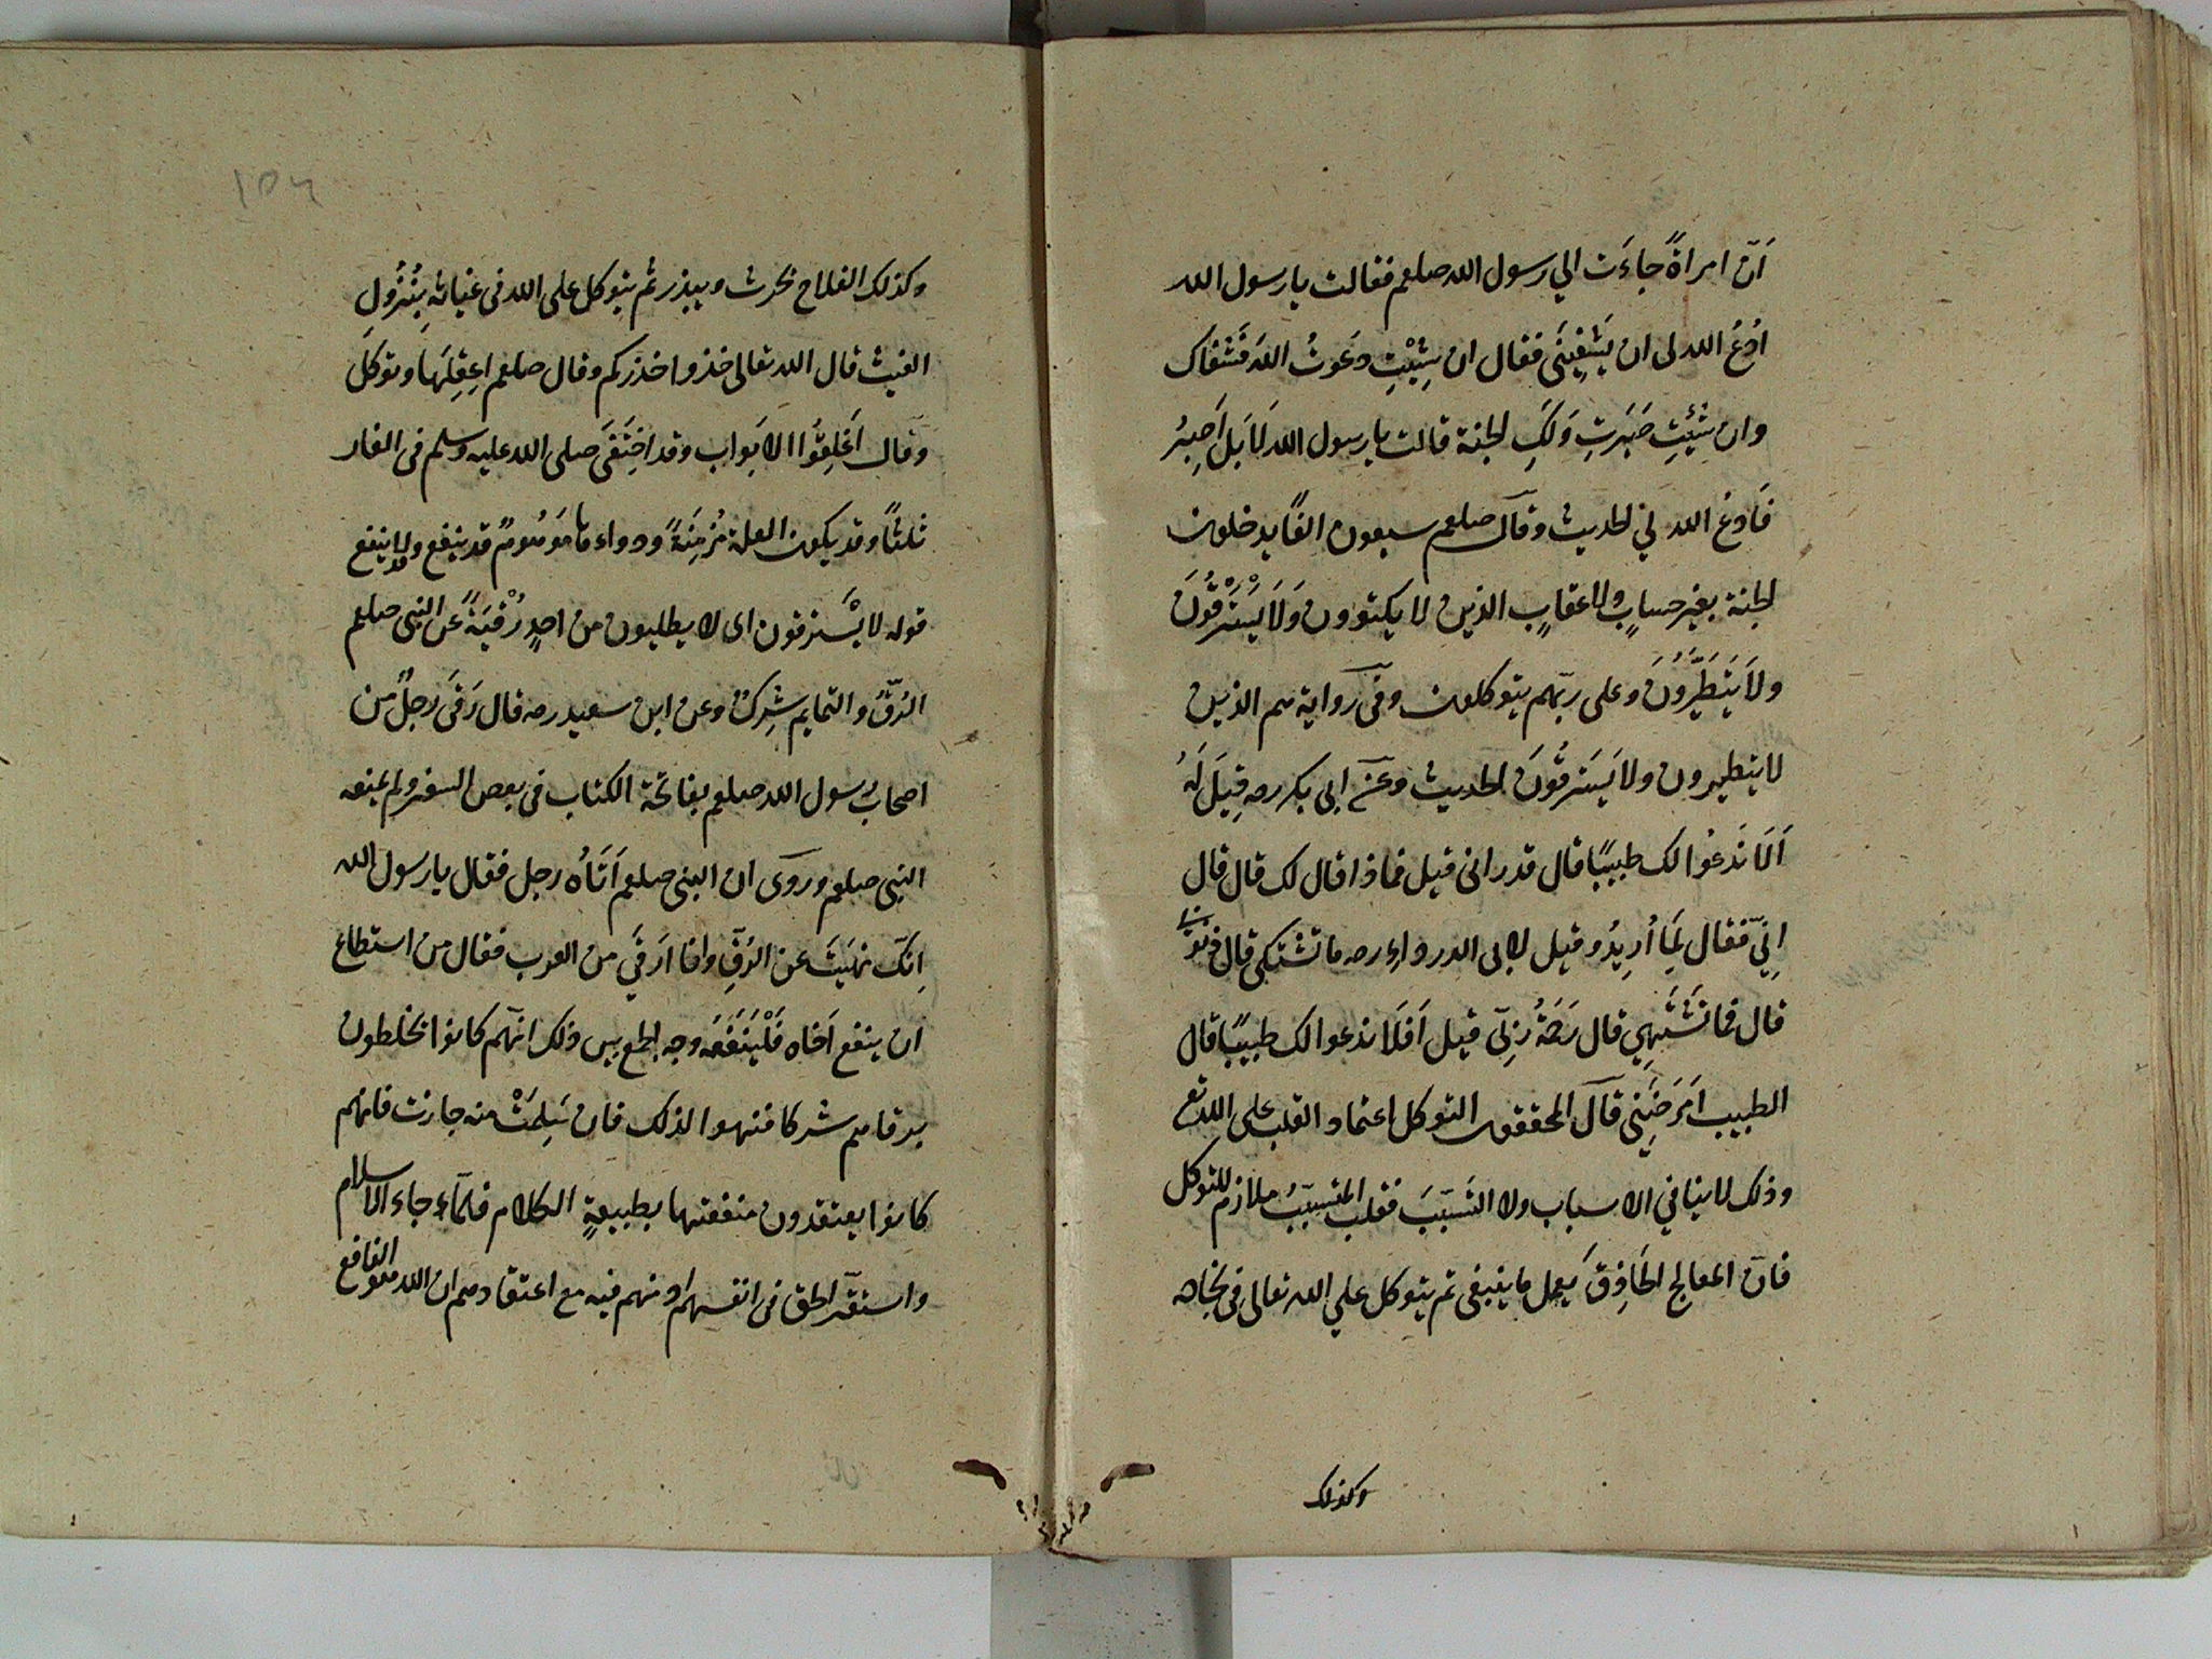 اَنّ امراةً جاءَت الي رسول الله صلعم فقالت يا رسول الله
اُدْعُ الله لى ان يَشْفِينَى فقال ان شِئْتِ دَعَوتُ اللهَ فَشَفاك
وان شِئْتِ صَبَرتِ وَلَكِ الجنة قالت يا رسول الله لَا بَل اَصبِرُ
فَادعُ الله لي الحديث وقال صلعم سبعون الفًا يدخلون
الجنة بغير حسابٍ ولا عقابٍ الذين لا يكتوون وَلَا يَسْتَرْقُونَ
ولَا يَتَطَيَّرُونَ وعلى ربّهم يتوكلون وفى رواية هم الذين
لا يتطيرون ولا يَسترقُونَ الحديث وعَن ابى بكر رضه قِيلَ لَهُ
اَلَا نَدعُوا لك طبيبًا قال قد رانى قيل فماذا قال لك قال قال
اِنّى فعّال لِمَا اُرِيدُ وقيل لابى الدرداء رضه ما تشتكى قال ذنوبى
قال فما تَشْتَهِي قال رَحمَةُ رَبِّى قيل اَفَلَا ندعوا لك طبيبًا قال
الطبيب اَمرَضَنِى قال المحققون التوكل اعتماد القلب على الله تع
وذلك لا ينافي الاسباب ولا التَسَبّبَ فقلب المتسبّبُ ملازم للتوكل
فانّ المعالج الحَاذِقَ يعمل ما ينبغى ثم يتوكل علي الله تعالى فى نجاحه
وكذلك
١٥٦
وكذلك الفلاح يحرث ويبذر ثم يتوكل على الله فى غياثهِ بِنُزُولِ
الغيث قال الله تعالى خذوا حذركم وقال صلعم اِعقِلَها وتوكل
وقال اَغلِقُوا الابَواب وقد اختَفَى صلى الله عليه وسلم فى الغار
ثلثًا وقد يكون العلة مُزمِنَةً ودواءها مَوهُومٌ قد ينفع وقد لا ينفع
قوله لا يَسْترقون اى لا يطلبون من احدٍ رُقْيَةً عن النبى صلعم
الرُقَى والتمايم شِركٌ وعن ابن سعيد رضه قال رَقَى رجلٌ من
اصحاب رسول الله صلعم بفاتحة الكتاب فى بعض السفر ولم يمنعه
النبى صلعم وروى ان النبى صلعم اَتَاه رجل فقال يا رسول الله
اِنك نهيَتَ عن الرُقَى وانا اَرقَي من العرب فقال من استطاع
ان ينفع اَخاه فَلْيَنْفَعَه وجه الجمع بين ذلك انّهم كانوا يخلطون
برقاهم شركا فنهوا لذلك فان سَلِمَتْ منه جازت فانهم
كانوا يعتقدون منفعتها بطبيعةِ الكلام فلمّا جاء الاسلام
واستقرّ الحق فى انفسهم اذنهم فيه مع اعتقادهم ان الله هو النافع